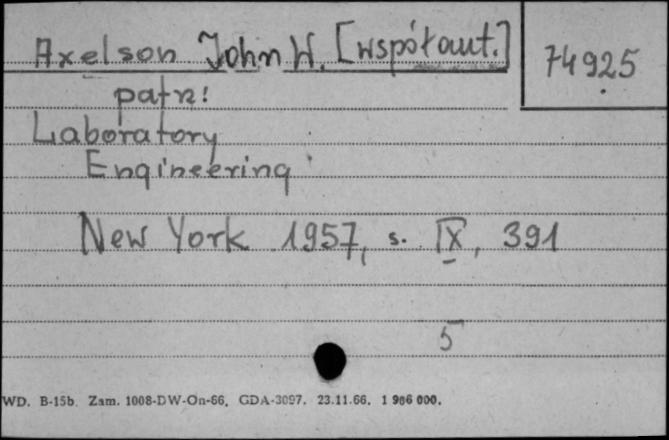 Axelson John W. [współaut.]
74925
patrz!
Laboratory
Engineering
New York 1957, s. IX, 391
5
WD. B-15b. Zam. 1008-DW-On-66. GDA-3097. 23.11.66. 1 906 000.